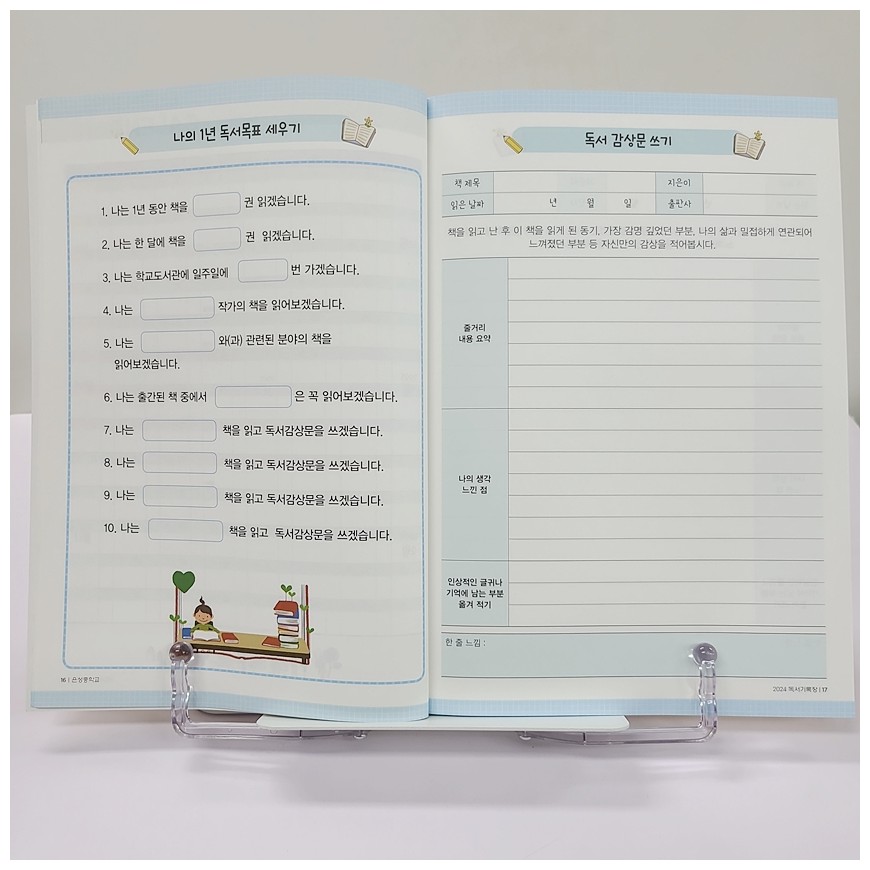 나의 1년 독서목표 세우기
1. 나는 1년 동안 책을 권 읽겠습니다.
2. 나는 한 달에 책을 권 읽겠습니다.
3. 나는 학교도서관에 일주일에 번 가겠습니다.
4. 나는 작가의 책을 읽어보겠습니다.
5. 나는 와(과) 관련된 분야의 책을
읽어보겠습니다.
6. 나는 출간된 책 중에서 은 꼭 읽어보겠습니다.
7. 나는 책을 읽고 독서감상문을 쓰겠습니다.
8. 나는 책을 읽고 독서감상문을 쓰겠습니다.
9. 나는 책을 읽고 독서감상문을 쓰겠습니다.
10. 나는 책을 읽고 독서감상문을 쓰겠습니다.
16 |
독서 감상문 쓰기
책 제목 지은이
읽은 날짜 년 월 일 출판사
책을 읽고 난 후 이 책을 읽게 된 동기, 가장 감명 깊었던 부분, 나의 삶과 밀접하게 연관되어
느껴졌던 부분 등 자신만의 감상을 적어봅시다.
줄거리
내용 요약
나의 생각
느낀 점
인상적인 글귀나
기억에 남는 부분
옮겨 적기
한 줄 느낌 :
2024 독서기록장 | 17